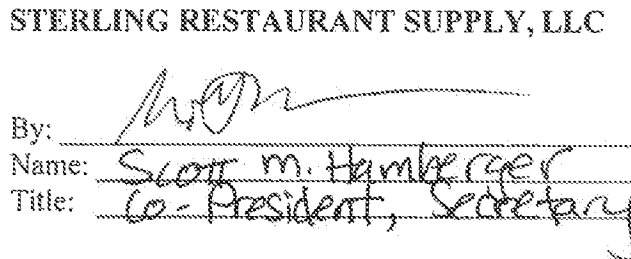 STERLING RESTAURANT SUPPLY, LLC
By:
Name: Scott M. Hamberger
Title: Co-President, Secretary